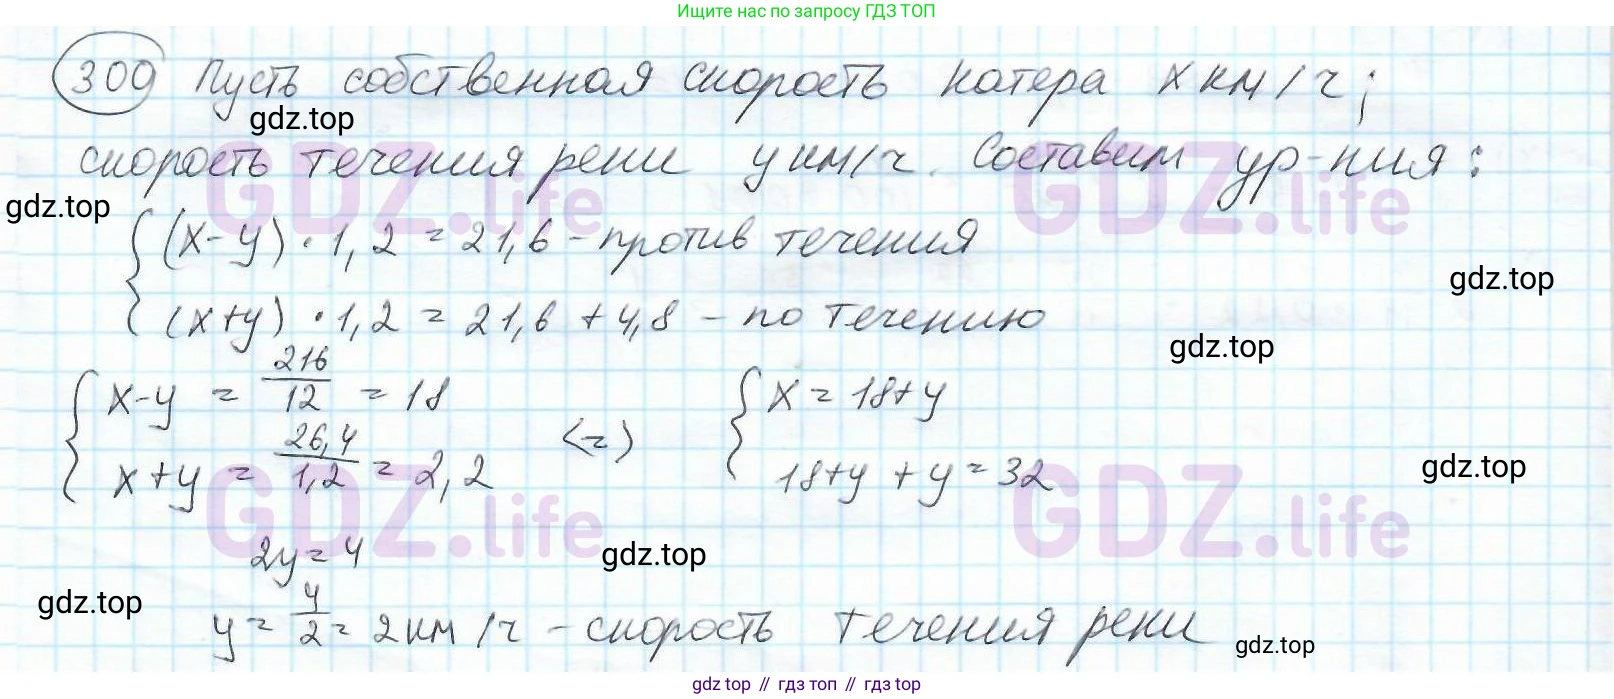 Ищите нас по запросу ГДЗ ТОП
309 Пусть собственная скорость катера x км/ч;
gdz.top
скорость течения реки y км/ч. Составим ур-ния:
GDZ.life GDZ.life
gdz.top
{ (x-y) · 1,2 = 21,6 - против течения
gdz.top
(x+y) · 1,2 = 21,6 + 4,8 - по течению
gdz.top
{ x-y = 216/12 = 18 { x = 18+y
x+y = 26,4/1,2 = 2,2 <=> 18+y + y = 32
gdz.top
GDZ.life GDZ.life
2y = 4
gdz.top
gdz.top
y = 4/2 = 2 км/ч - скорость течения реки
gdz.top
gdz top // гдз топ // гдз top